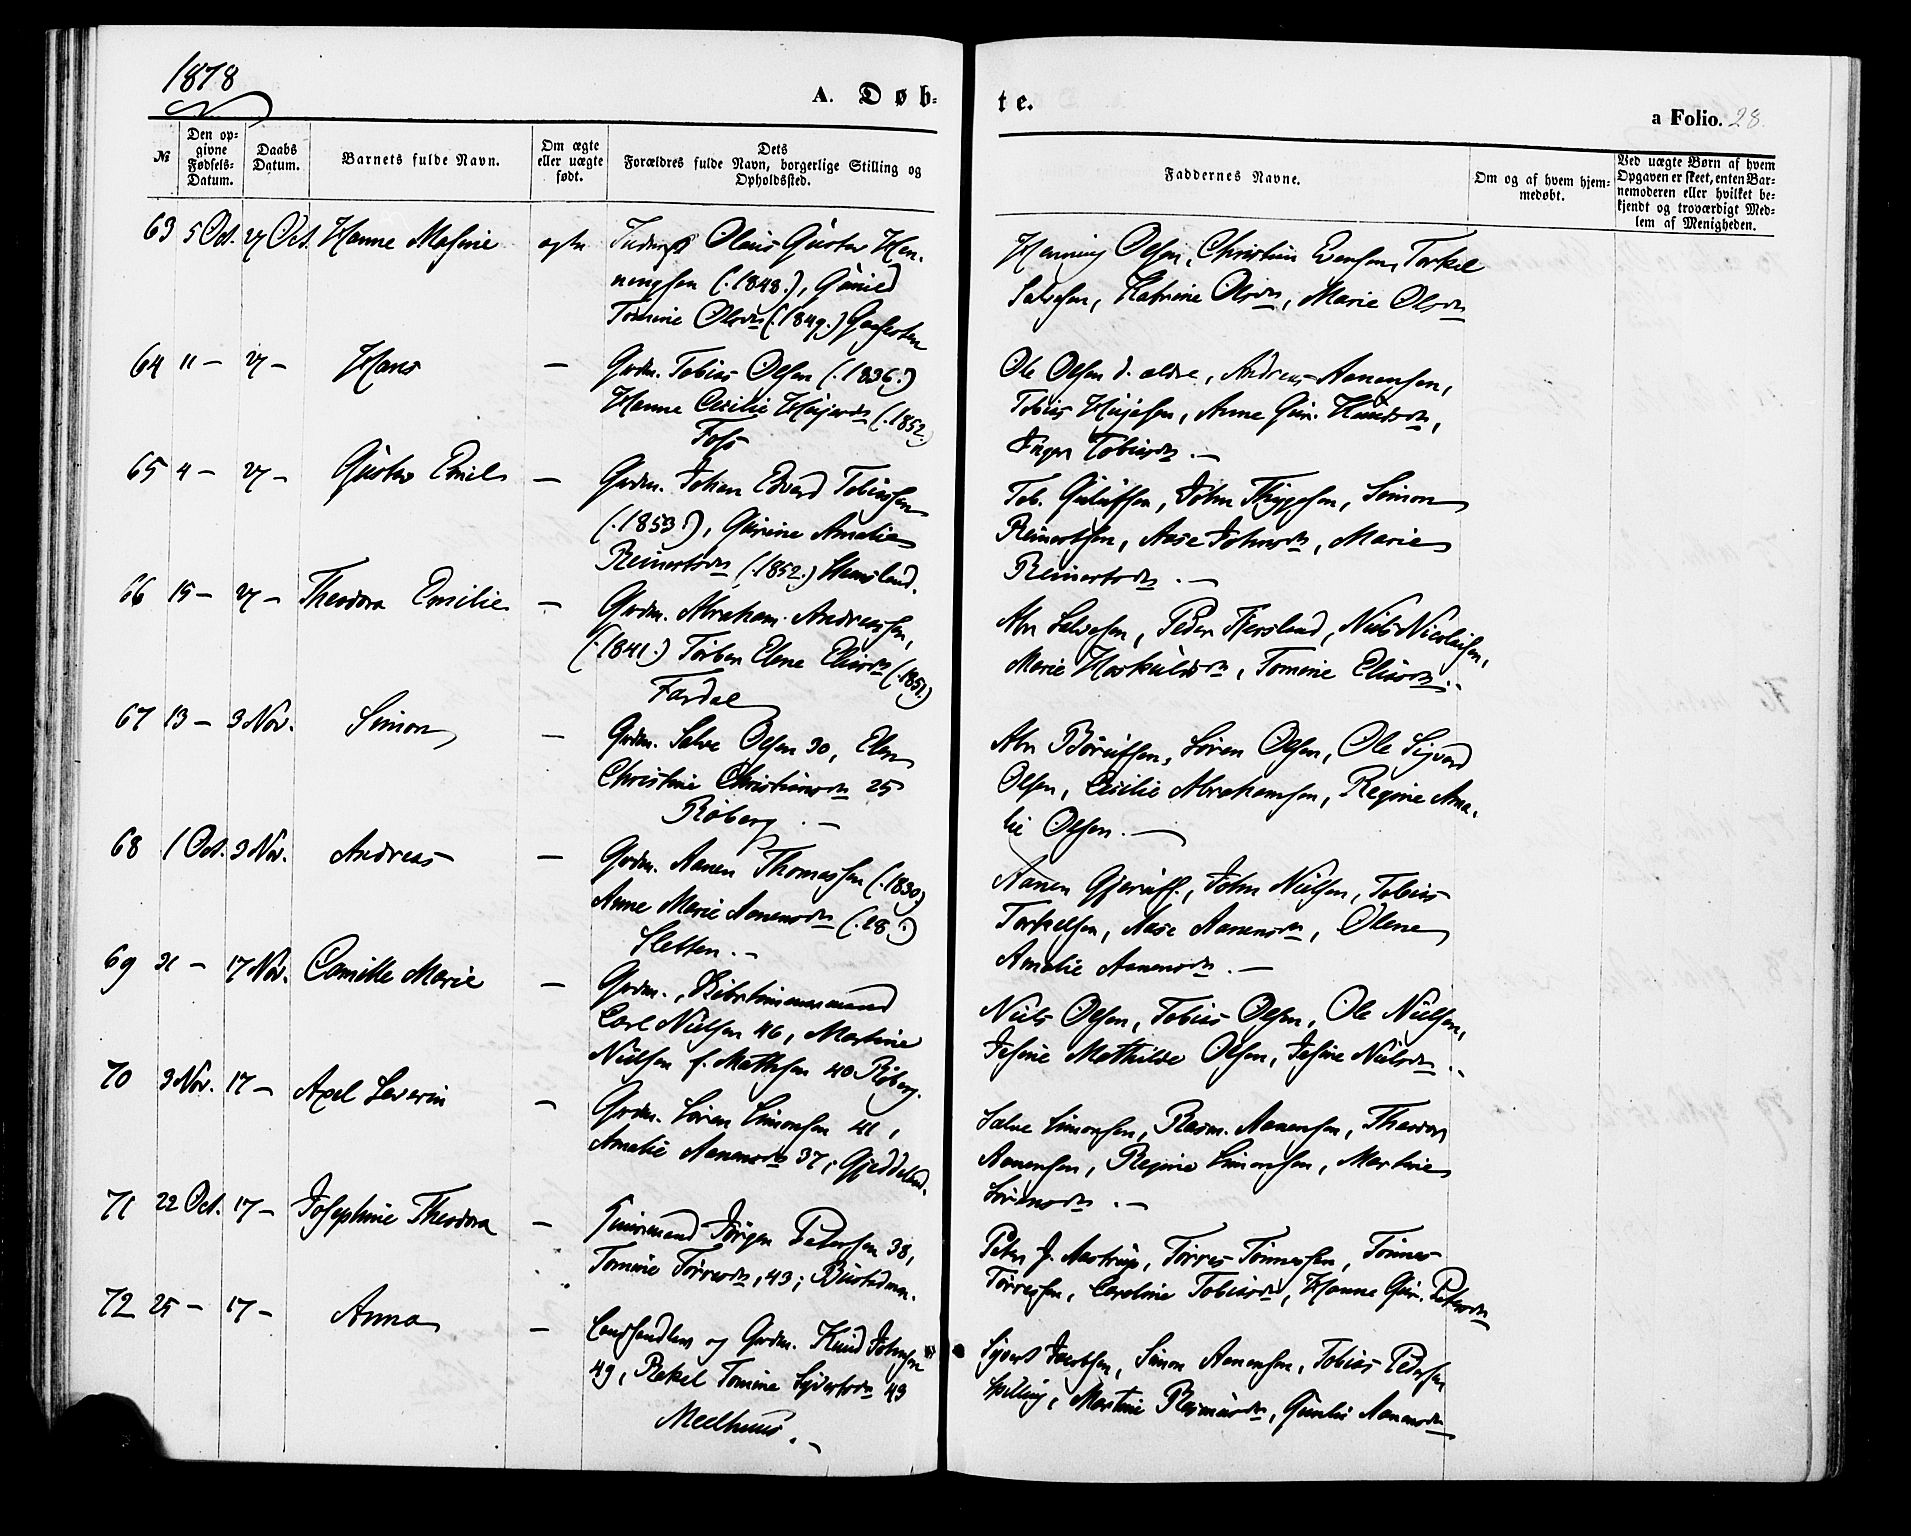 1878
A. Døb-
te.
a Folio. 28.
№
Den op-
givne
Fødsels-
Datum.
Daabs
Datum.
Barnets fulde Navn.
Om ægte
eller uægte
født.
Dets
Forældres fulde Navn, borgerlige Stilling og
Opholdssted.
Faddernes Navne.
Om og af hvem hjem-
medøbt.
Ved uægte Børn af hvem
Opgaven er skeet, enten Bar-
nemoderen eller hvilket be-
kjendt og troværdigt Med-
lem af Menigheden.
63 5 Oct. 27 Oct. Hanne Masine ægte Olaus Gustav Hen-
ningsen (.1848.), Gunild
Tomine Olsdr (.1849.)
Henning Olsen, Christian Evensen, Torkel
Salvesen, Katrine Olsdr, Marie Olsdr
64 11 — 27 — Hans — Grdm. Tobias Olsen (.1836.)
Hanne Cecilie (.1852.)
Foss
Ole Olsen d. ældre, Andreas Aanensen,
Tobias Anne Gur. Knudsdr,
Inger Tobiasdr. —
65 4 — 27 — Gustav Emil — Grdm. Johan Edvard Tobiassen
(.1853.), Gurine Amalie
Reinertsdr (.1852.)
Tob. John Thygesen, Simon
Reinertsen, Aase Johnsdr, Marie
Reinertsdr. —
66 15 — 27 — Theodora Emilie — Grdm. Abraham Andreassen,
(.1841.) Torbor Elene Eliasdr (.1851.)
Fardal
Abr Salvesen, Peder Niels Nicolaisen,
Marie Tomine Eliasdr. —
67 13 — 3 Nov. Simon — Grdm. Salve Olsen 30, Elen
Christine Christiansdr 25
Røberg. —
Abr Søren Olsen, Ole Sigvard
Olsen, Cecilie Abrahamsen, Regine Ama-
lie Olsen. —
68 1 Oct. 3 Nov. Andreas — Grdm. Aanen Thomassen (.1830)
Anne Marie Aanensdr (.18 .)
Sletten. —
Aanen John Nielsen, Tobias
Torkelsen, Aase Aanensdr, Olene
Amalie Aanensdr. —
69 31 — 17 Nov. Camilla Marie — Grdm.,
Carl Nielsen 46, Martine
Nielsen f. Mathsen 40 Røberg.
Niels Olsen, Tobias Olsen, Ole Nielsen,
Josine Mathilde Olsen, Josine Nielsdr. —
70 3 Nov. 17 — Axel Severin — Grdm. Søren Simonsen 41,
Amalie Aanensdr 37, Gjeddeland.
Salve Simonsen, Rasm. Aanensen, Theodor
Aanensen, Regine Simonsen, Martine
Sørensdr. —
71 22 Oct. 17 — Josephine Theodora — Huusmand Jørgen Petersen 38,
Tomine Tørresdr, 43;
Peter J. Aastrup, Tørres Tønnessen, Tønnes
Tørressen, Caroline Tobiasdr, Hanne Gur. Petersdr
72 25 — 17 — Anna — Landhandler og Grdm. Knud Johnsen
49, Rakel Tomine Syvertsdr 43
Meelhuus. —
Syvert Jacobsen, Simon Aanensen, Tobias Pedersen
Spilling, Martine Rasmusdr, Gunhild Aanensdr